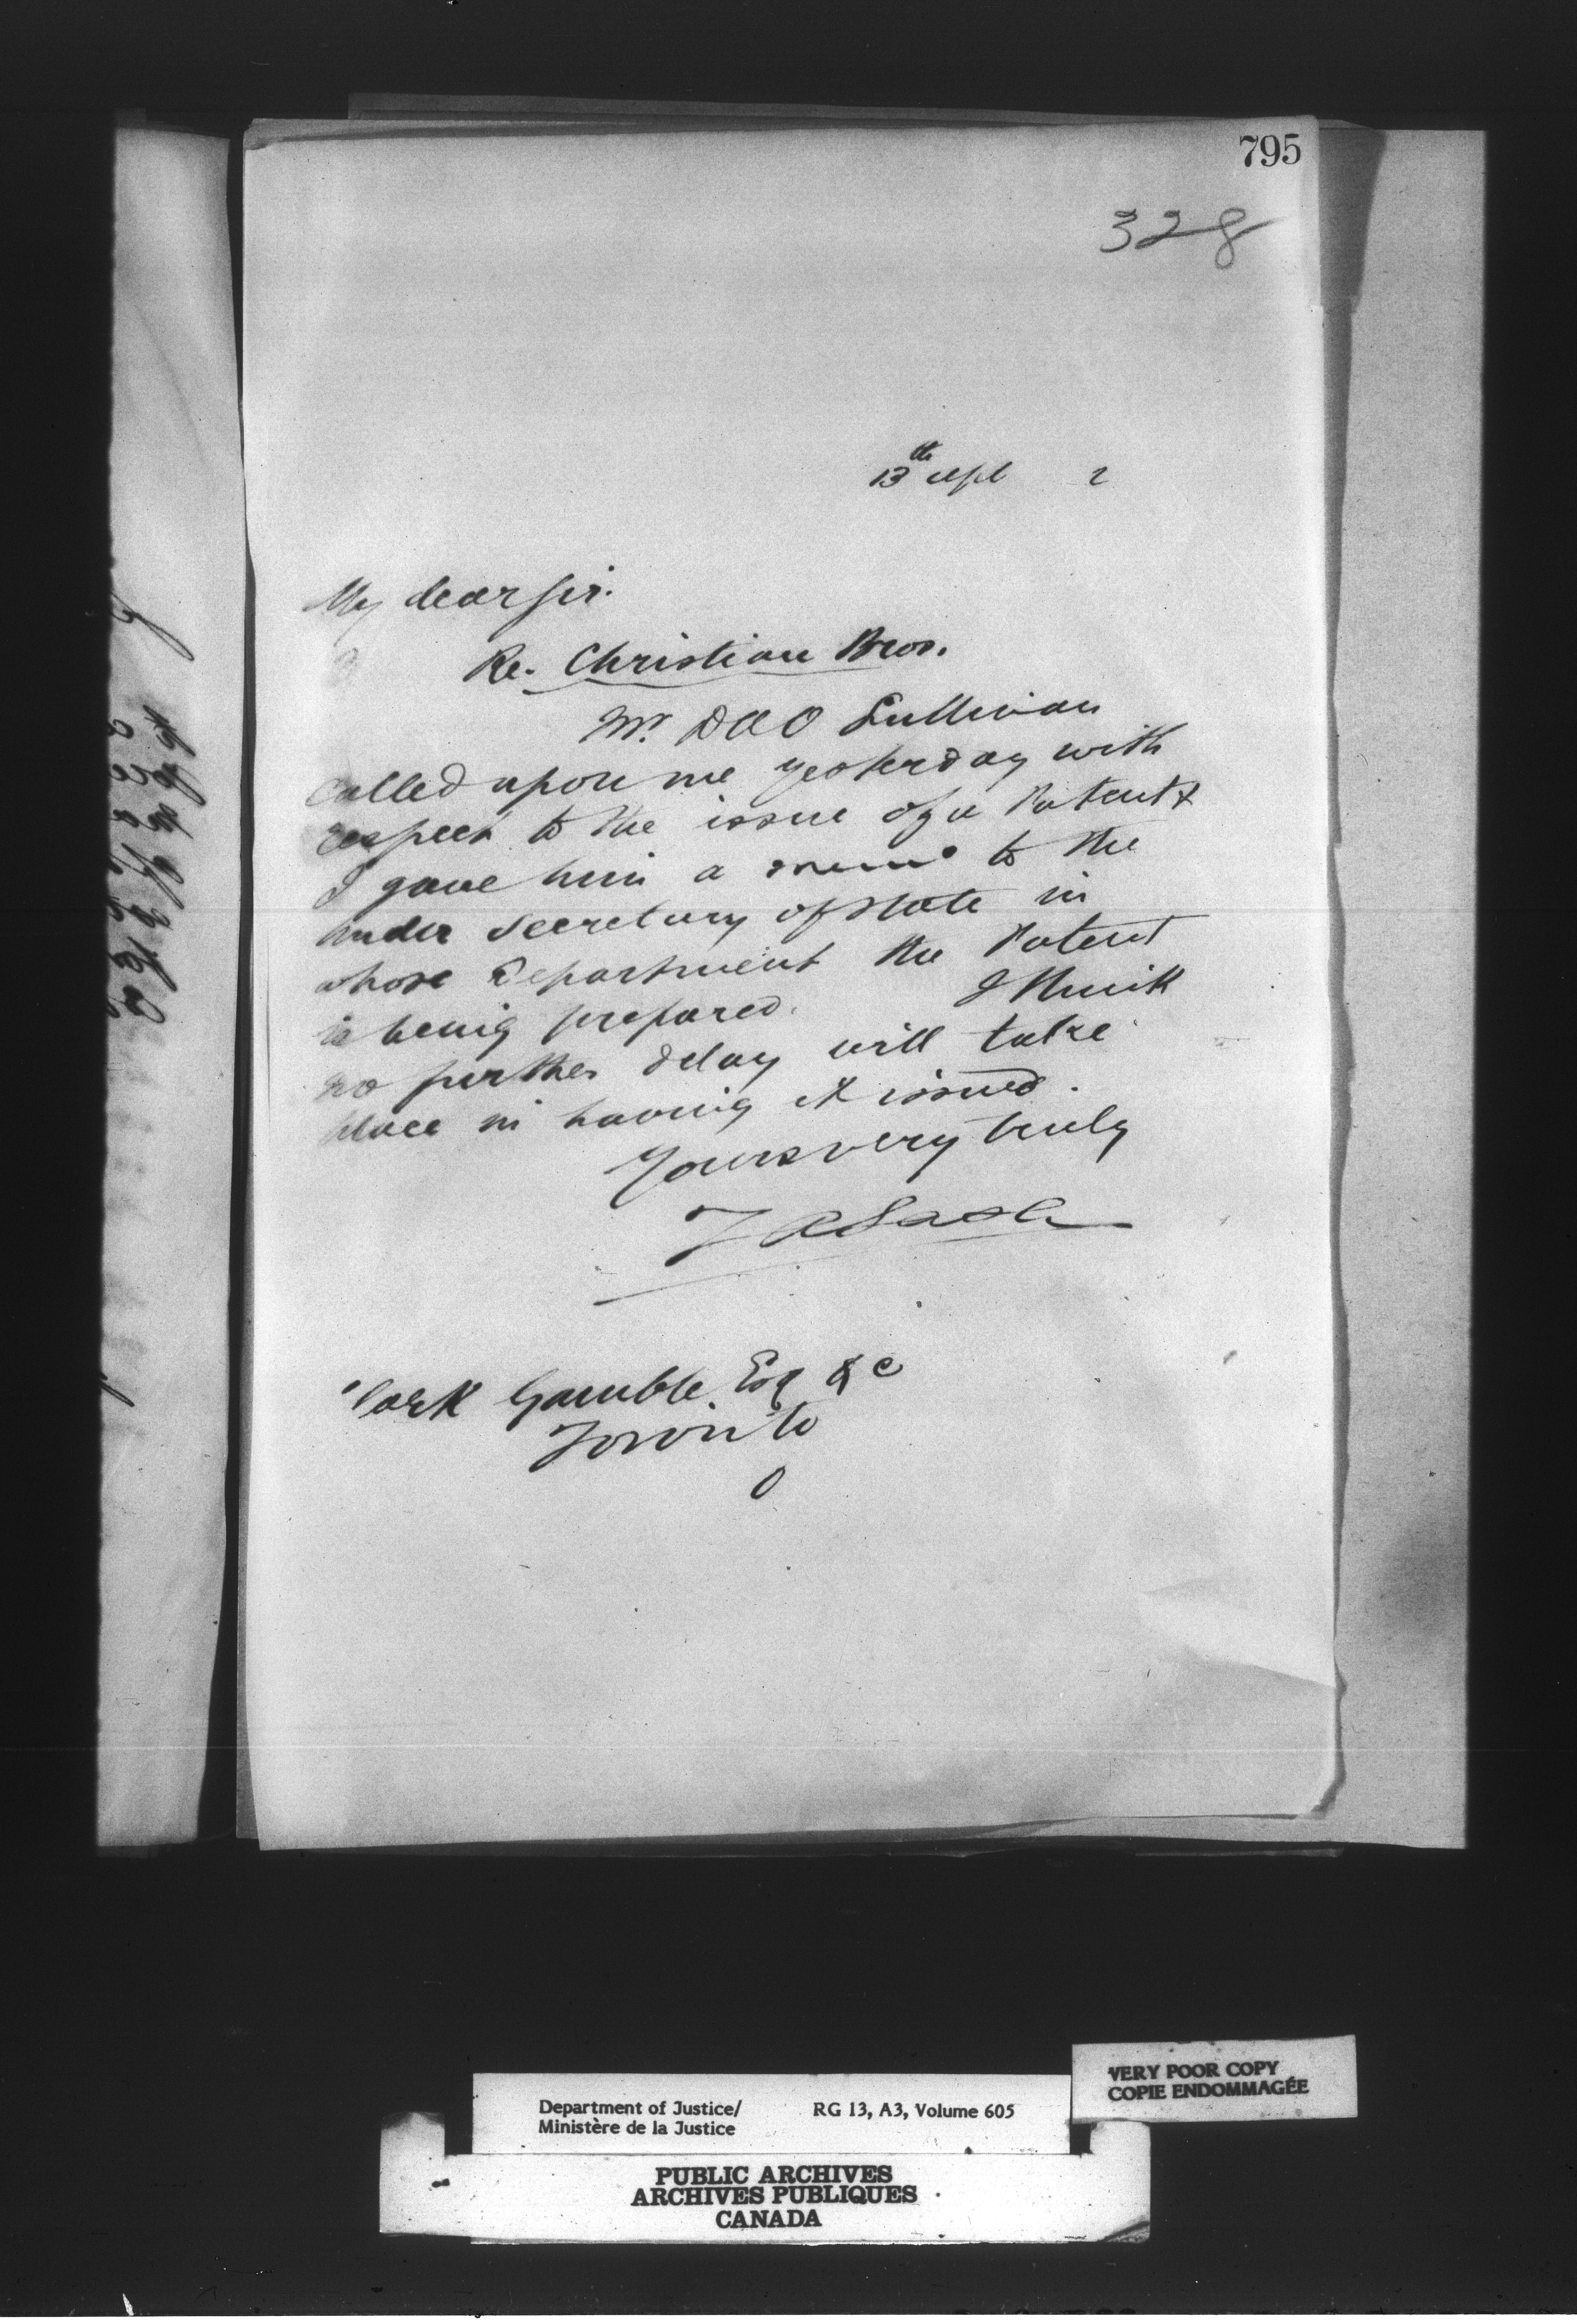 795
328
13th Sept 2
My dear Sir.
Re. Christian Bros.
Mr. D A O Sullivan
called upon me yesterday with
respect to the issue of a Patent &
I gave him a memo to the
under Secretary of State in
whose Department the Patent
is being prepared. I think
no further delay will take
place in having it issued.
Yours very truly
Z A Lash
Clark Gamble Esq &c
Toronto
O
VERY POOR COPY
COPIE ENDOMMAGÉE
Department of Justice/ RG 13, A3, Volume 605
Ministère de la Justice
PUBLIC ARCHIVES
ARCHIVES PUBLIQUES
CANADA